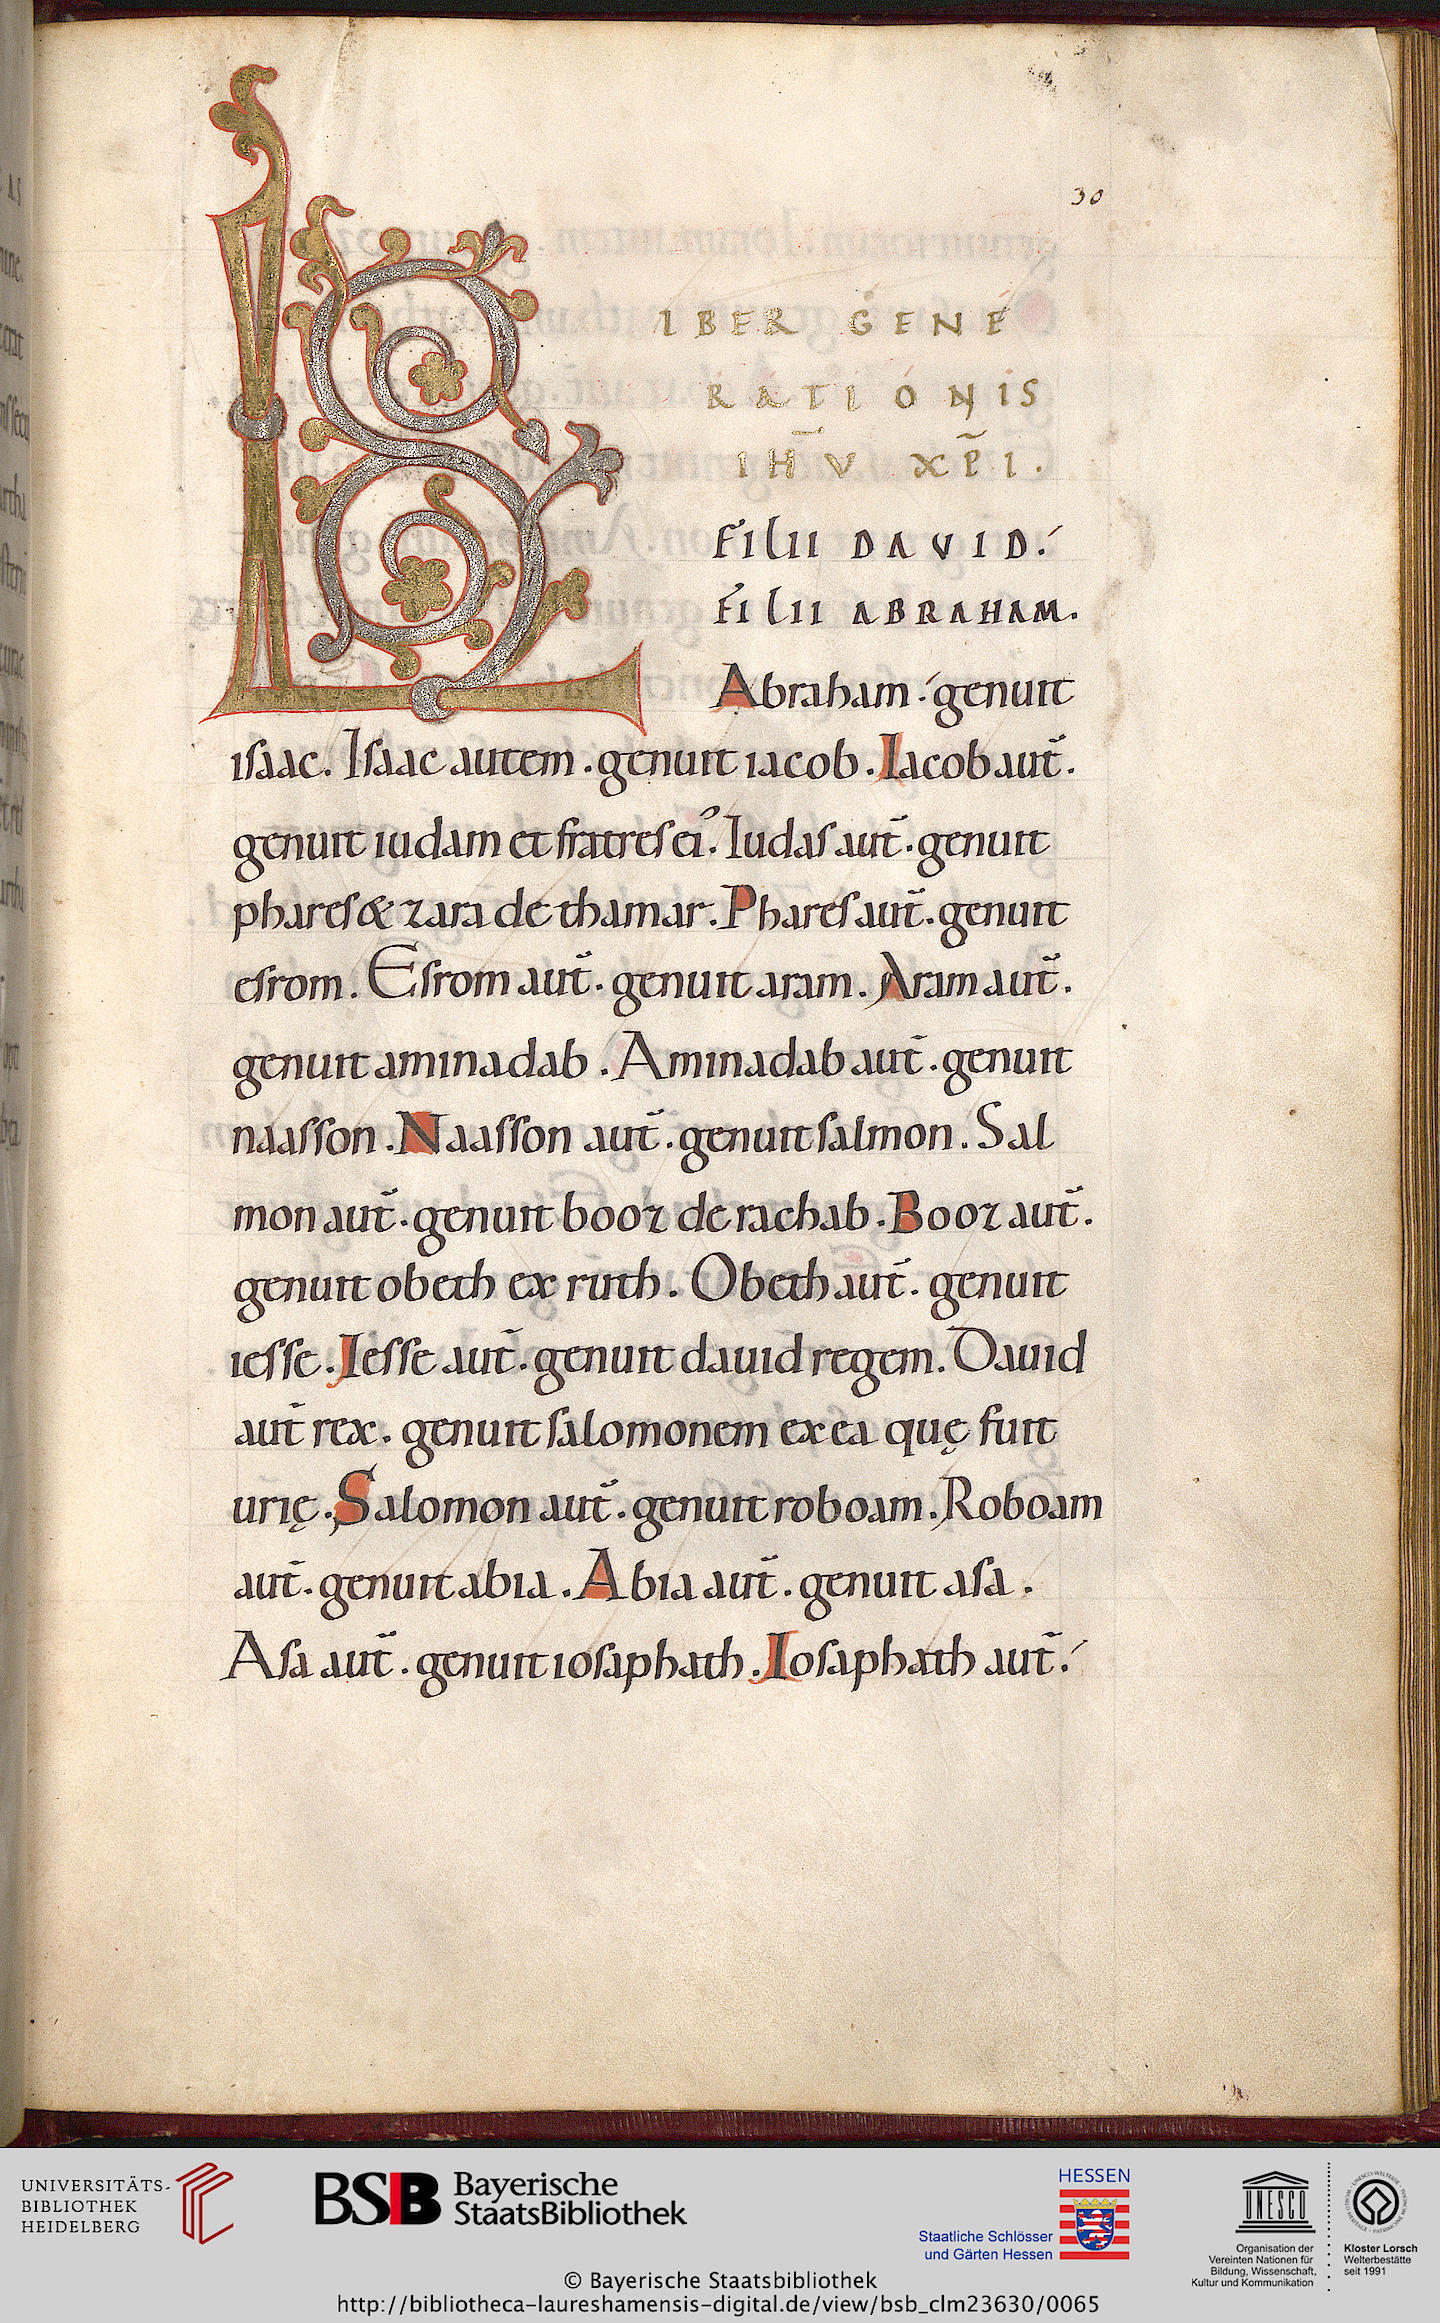 30
LIBER GENE
RATIONIS
IHV̄ XP̄I.
FILII DAVID.
FILII ABRAHAM.
Abraham. genuit
isaac. Isaac autem. genuit iacob. Iacob aut̄.
genuit iudam et fratres ei᾽. Iudas aut̄. genuit
phares & zara de thamar. Phares aut̄. genuit
esrom. Esrom aut̄. genuit aram. Aram aut̄.
genuit aminadab. Aminadab aut̄. genuit
naasson. Naasson aut̄. genuit salmon. Sal
mon aut̄. genuit booz de rachab. Booz aut̄.
genuit obeth ex ruth. Obeth aut̄. genuit
iesse. Iesse aut̄. genuit dauid regem. Dauid
aut̄ rex. genuit salomonem ex ea quę fuit
urię. Salomon aut̄. genuit roboam. Roboam
aut̄. genuit abia. Abia aut̄. genuit asa.
Asa aut̄. genuit iosaphath. Iosaphath aut̄.
UNIVERSITÄTS-
BIBLIOTHEK
HEIDELBERG
BSB Bayerische
StaatsBibliothek
HESSEN
Staatliche Schlösser
und Gärten Hessen
UNESCO
Organisation der
Vereinten Nationen für
Bildung, Wissenschaft,
Kultur und Kommunikation
Kloster Lorsch
Welterbestätte
seit 1991
© Bayerische Staatsbibliothek
http://bibliotheca-laureshamensis-digital.de/view/bsb_clm23630/0065